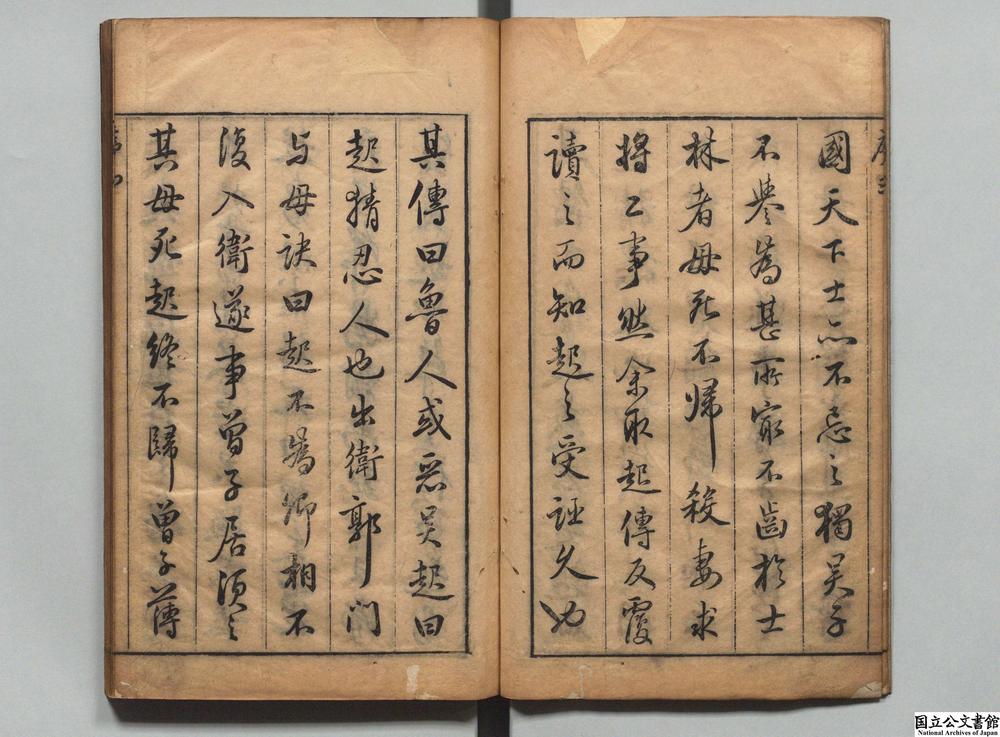 國天下士亦不忌之獨吳子
不譽為甚所最不齒於士
林者母死不歸殺妻求
將二事然余取起傳反覆
讀之而知起之受誣久也
其傳曰魯人或惡吳起曰
起猜忍人也出衛郭門
与母訣曰起不為卿相不
復入衛遂事曾子居頃之
其母死起終不歸曾子薄
国立公文書館
National Archives of Japan